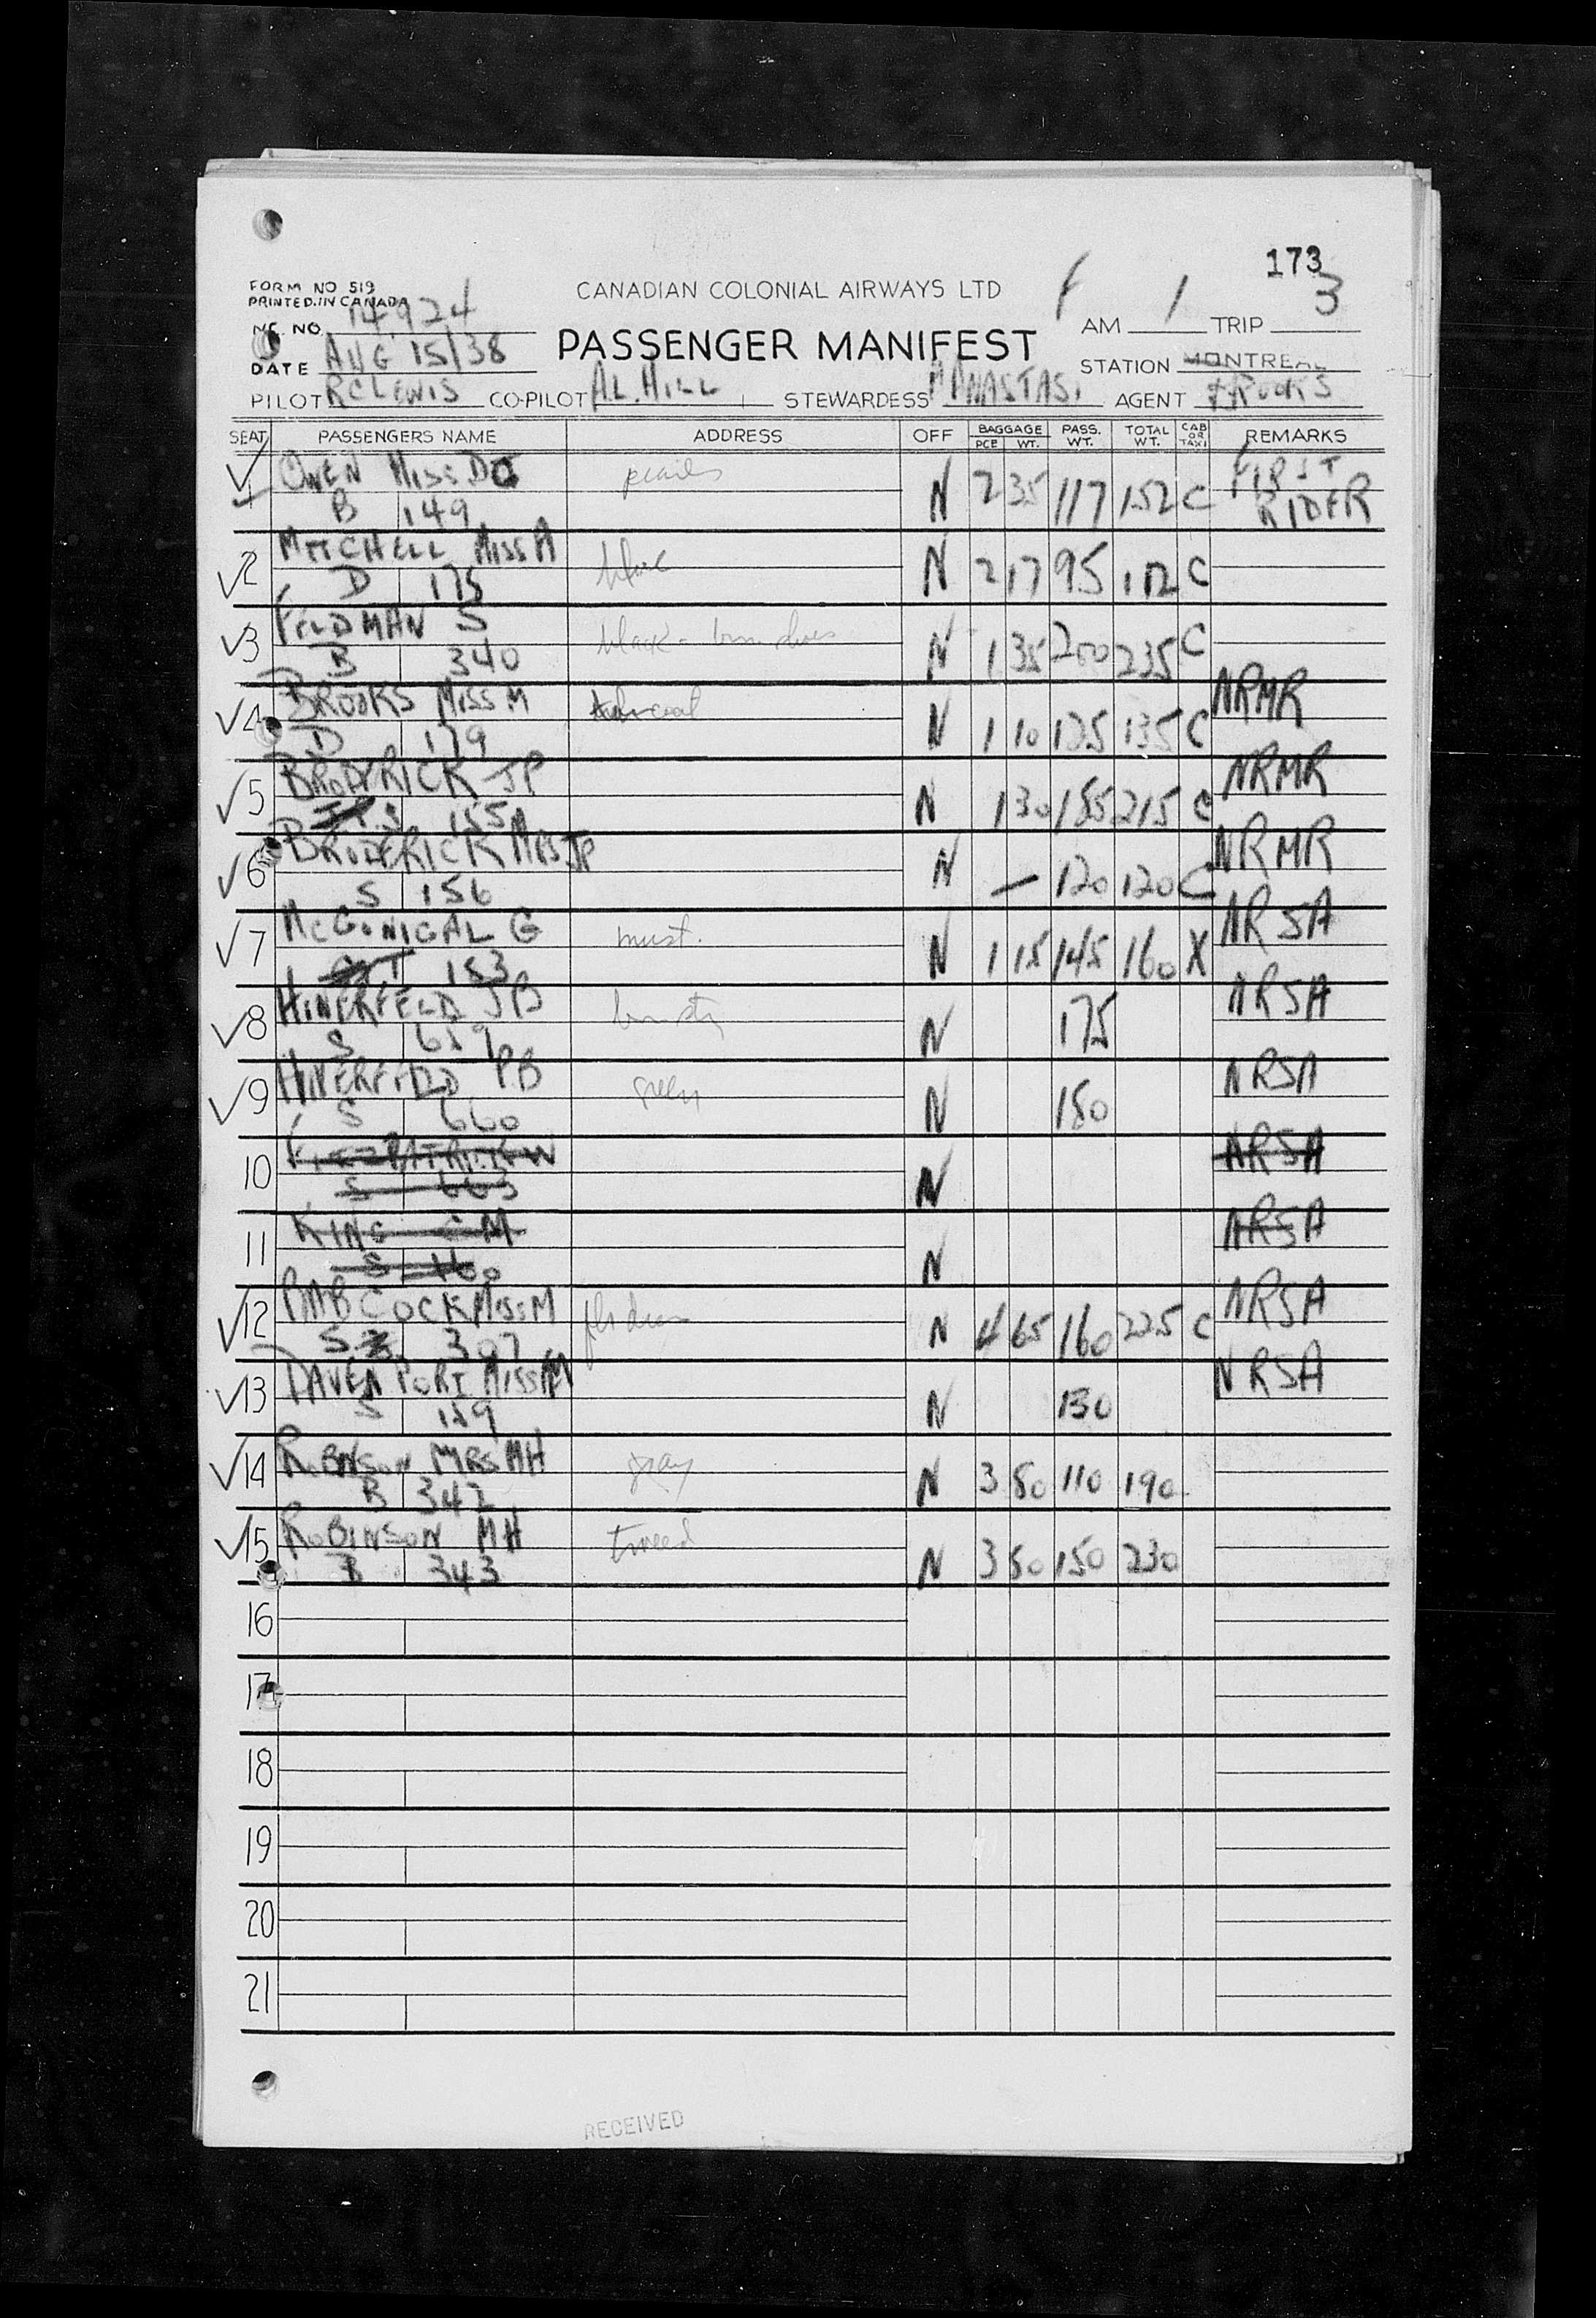 173
FORM NO 519
PRINTED IN CANADA
CANADIAN COLONIAL AIRWAYS LTD
NC. NO. 14924
PASSENGER MANIFEST
AM 1 TRIP 3
DATE AUG 15/38
STATION MONTREAL
PILOT RC LEWIS CO-PILOT A.L. HILL STEWARDESS M ANASTASI AGENT BROOKS
SEAT PASSENGERS NAME ADDRESS OFF BAGGAGE PCE WT. PASS. WT. TOTAL WT. CAB OR TAXI REMARKS
1 OWEN MISS D pearls N 2 35 117 152 C FIRST RIDER
B 149
2 MITCHELL MISS A blue N 2 17 95 112 C
D 175
3 FELDMAN S black - brn shoes N 1 35 200 235 C
B 340
4 BROOKS MISS M coat N 1 10 125 135 C NRMR
D 179
5 BRODERICK JP N 1 30 185 215 C NRMR
S 155
6 BRODERICK MRS JP N — 120 120 C NRMR
S 156
7 MCGONIGAL G must. N 1 15 145 160 X NRSA
153
8 HINERFELD JB N 175 NRSA
S 659
9 HINERFELD PB green N 180 NRSA
S 660
10 FITZPATRICK W N NRSA
S 663
11 KING M N NRSA
S 160
12 BABCOCK MISS M N 4 65 160 225 C NRSA
S 307
13 DAVENPORT MISS M N 130 NRSA
S 159
14 ROBINSON MRS MH gray N 3 80 110 190
B 342
15 ROBINSON MH tweed N 3 80 150 230
B 343
16
17
18
19
20
21
RECEIVED